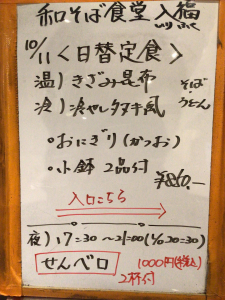 和そば食堂 入福
いり ふく
10/11 〈日替定食〉
温) きざみ昆布
冷) 冷やしタヌキ風
そば・うどん
・おにぎり(かつお)
・小鉢 2品付
¥850.—
入口こちら
夜) 17:30〜21:00(L/O 20:30)
せんベロ 1000円(税込)
2杯付